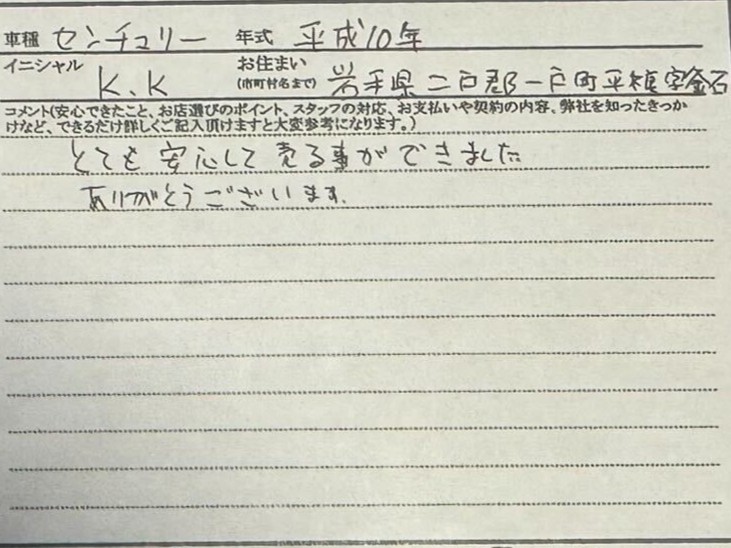 車種 センチュリー 年式 平成10年
イニシャル K.K お住まい (市町村名まで) 岩手県二戸郡一戸町平糠字釜石
コメント(安心できたこと、お店選びのポイント、スタッフの対応、お支払いや契約の内容、弊社を知ったきっか
けなど、できるだけ詳しくご記入頂けますと大変参考になります。)
とても安心して売る事ができました
ありがとうございます.